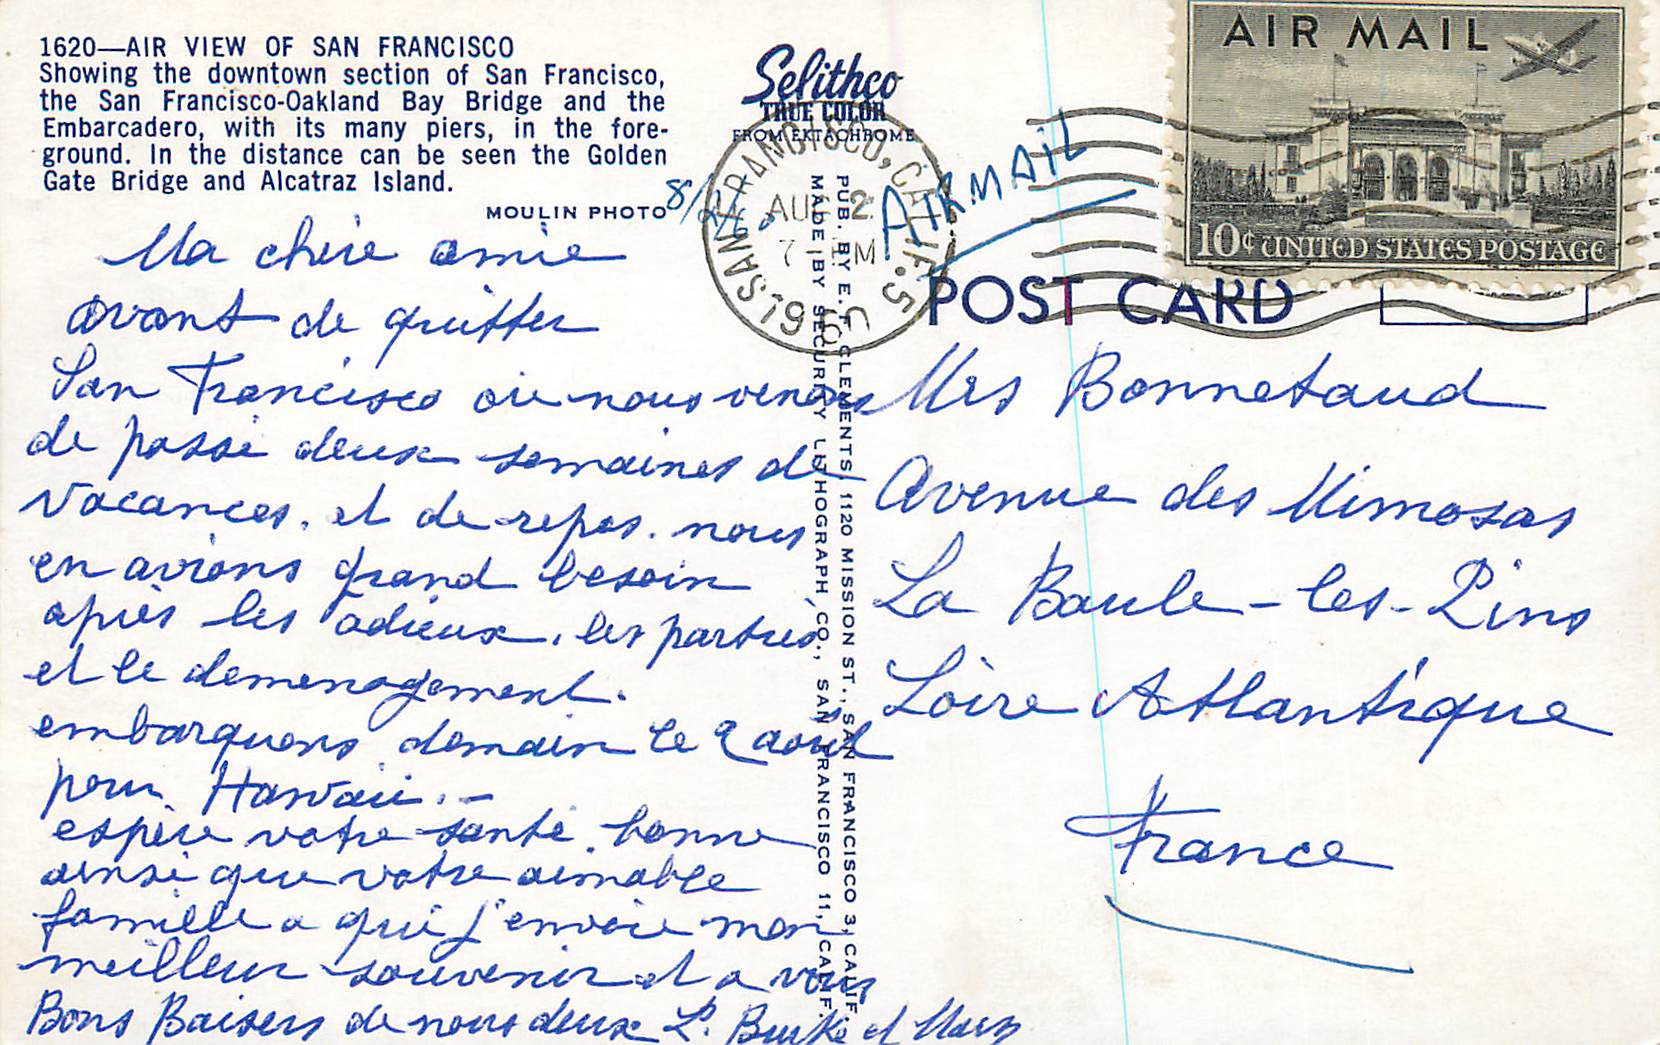 1620—AIR VIEW OF SAN FRANCISCO
Showing the downtown section of San Francisco,
the San Francisco-Oakland Bay Bridge and the
Embarcadero, with its many piers, in the fore-
ground. In the distance can be seen the Golden
Gate Bridge and Alcatraz Island.
MOULIN PHOTO
Selithco
TRUE COLOR
FROM EKTACHROME
AIR MAIL
10¢ UNITED STATES POSTAGE
SAN FRANCISCO, CALIF. 5
AUG 2
7 M
19
AIR MAIL
POST CARD
PUB. BY E. F. CLEMENTS, 1120 MISSION ST., SAN FRANCISCO 3, CALIF.
MADE BY SECURITY LITHOGRAPH CO., SAN FRANCISCO 11, CALIF.
8/
Ma chère amie
avant de quitter
San Francisco où nous venons
de passé deux semaines de
vacances. et de repos. nous
en avions grand besoin
après les adieux, les parties
et le demenagement.
embarquons demain le 2 août
pour Hawaii. –
espère votre santé bonne
ainsi que votre aimable
famille a qui j'envoie mon
meilleur souvenir et a vous
Bons Baisers de nous deux L. Burke et
Mrs Bonnetaud
Avenue des Mimosas
La Baule-les-Pins
Loire Atlantique
France